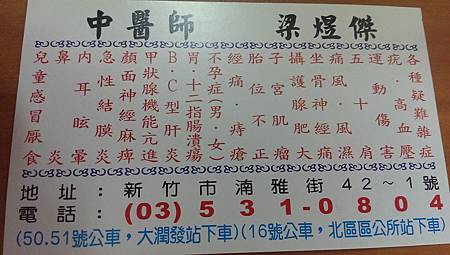 中醫師 梁煜傑
兒童感冒厭食
鼻炎
內耳眩暈
急性結膜炎
顏面神經麻痺
甲狀腺機能亢進
B·C型肝炎
胃·十二指腸潰瘍
不孕症(男·女)
經痛·痔瘡
胎位不正
子宮肌瘤
攝護腺肥大
坐骨神經痛
痛風·風濕
五十肩
運動傷害
疣·高血壓
各種疑難雜症
地址：新竹市湳雅街42~1號
電話：(03)531-0804
(50.51號公車，大潤發站下車)(16號公車，北區區公所站下車)